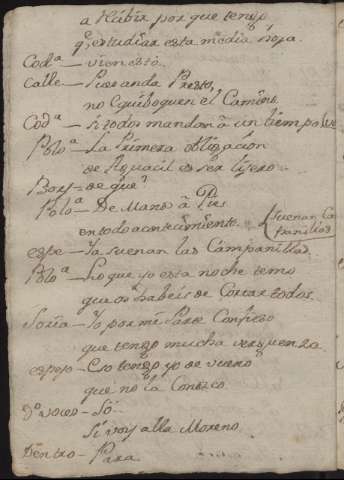 a Rabiar por que tengo
q.e estudiar esta media ója.
Cod.a — vien está.
Calle — Pues anda Presto,
no Equiboquen el Camino.
Cod.a — si todos mandan à un tiempo
Polo.a — La Primera obligacion
de Alguacil es ser ligero.
— de que?
Polo.a — De Manos à Pies
en todo acontecimiento.
suenan Ca
panillas
espe — Ya suenan las Campanillas.
Polo.a — Lo que yo esta noche temo
que os habeis de Cortar todos.
Soria — Yo por mi Parte Confieso
que tengo mucha verguenza
espejo — Eso tengo yo de vueno
que no la Conozco.
voces — Só.
Si voy alla Moreno.
Dentro — Para.